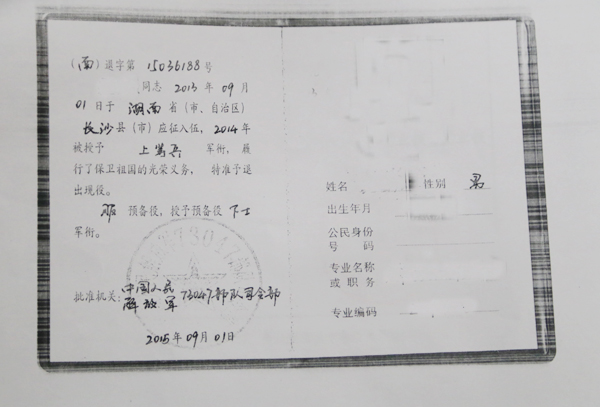 (南)退字第 15036188 号
同志 2013 年 09 月
01 日于 湖南 省(市、自治区)
长沙 县(市)应征入伍, 2014年
被授予 上等兵 军衔, 履
行了保卫祖国的光荣义务, 特准予退
出现役。
服 预备役, 授予预备役 下士
军衔。
批准机关: 中国人民
解放军 73047部队司令部
2015 年 09月 01日
姓名 性别 男
出生年月
公民身份
号码
专业名称
或职务
专业编码